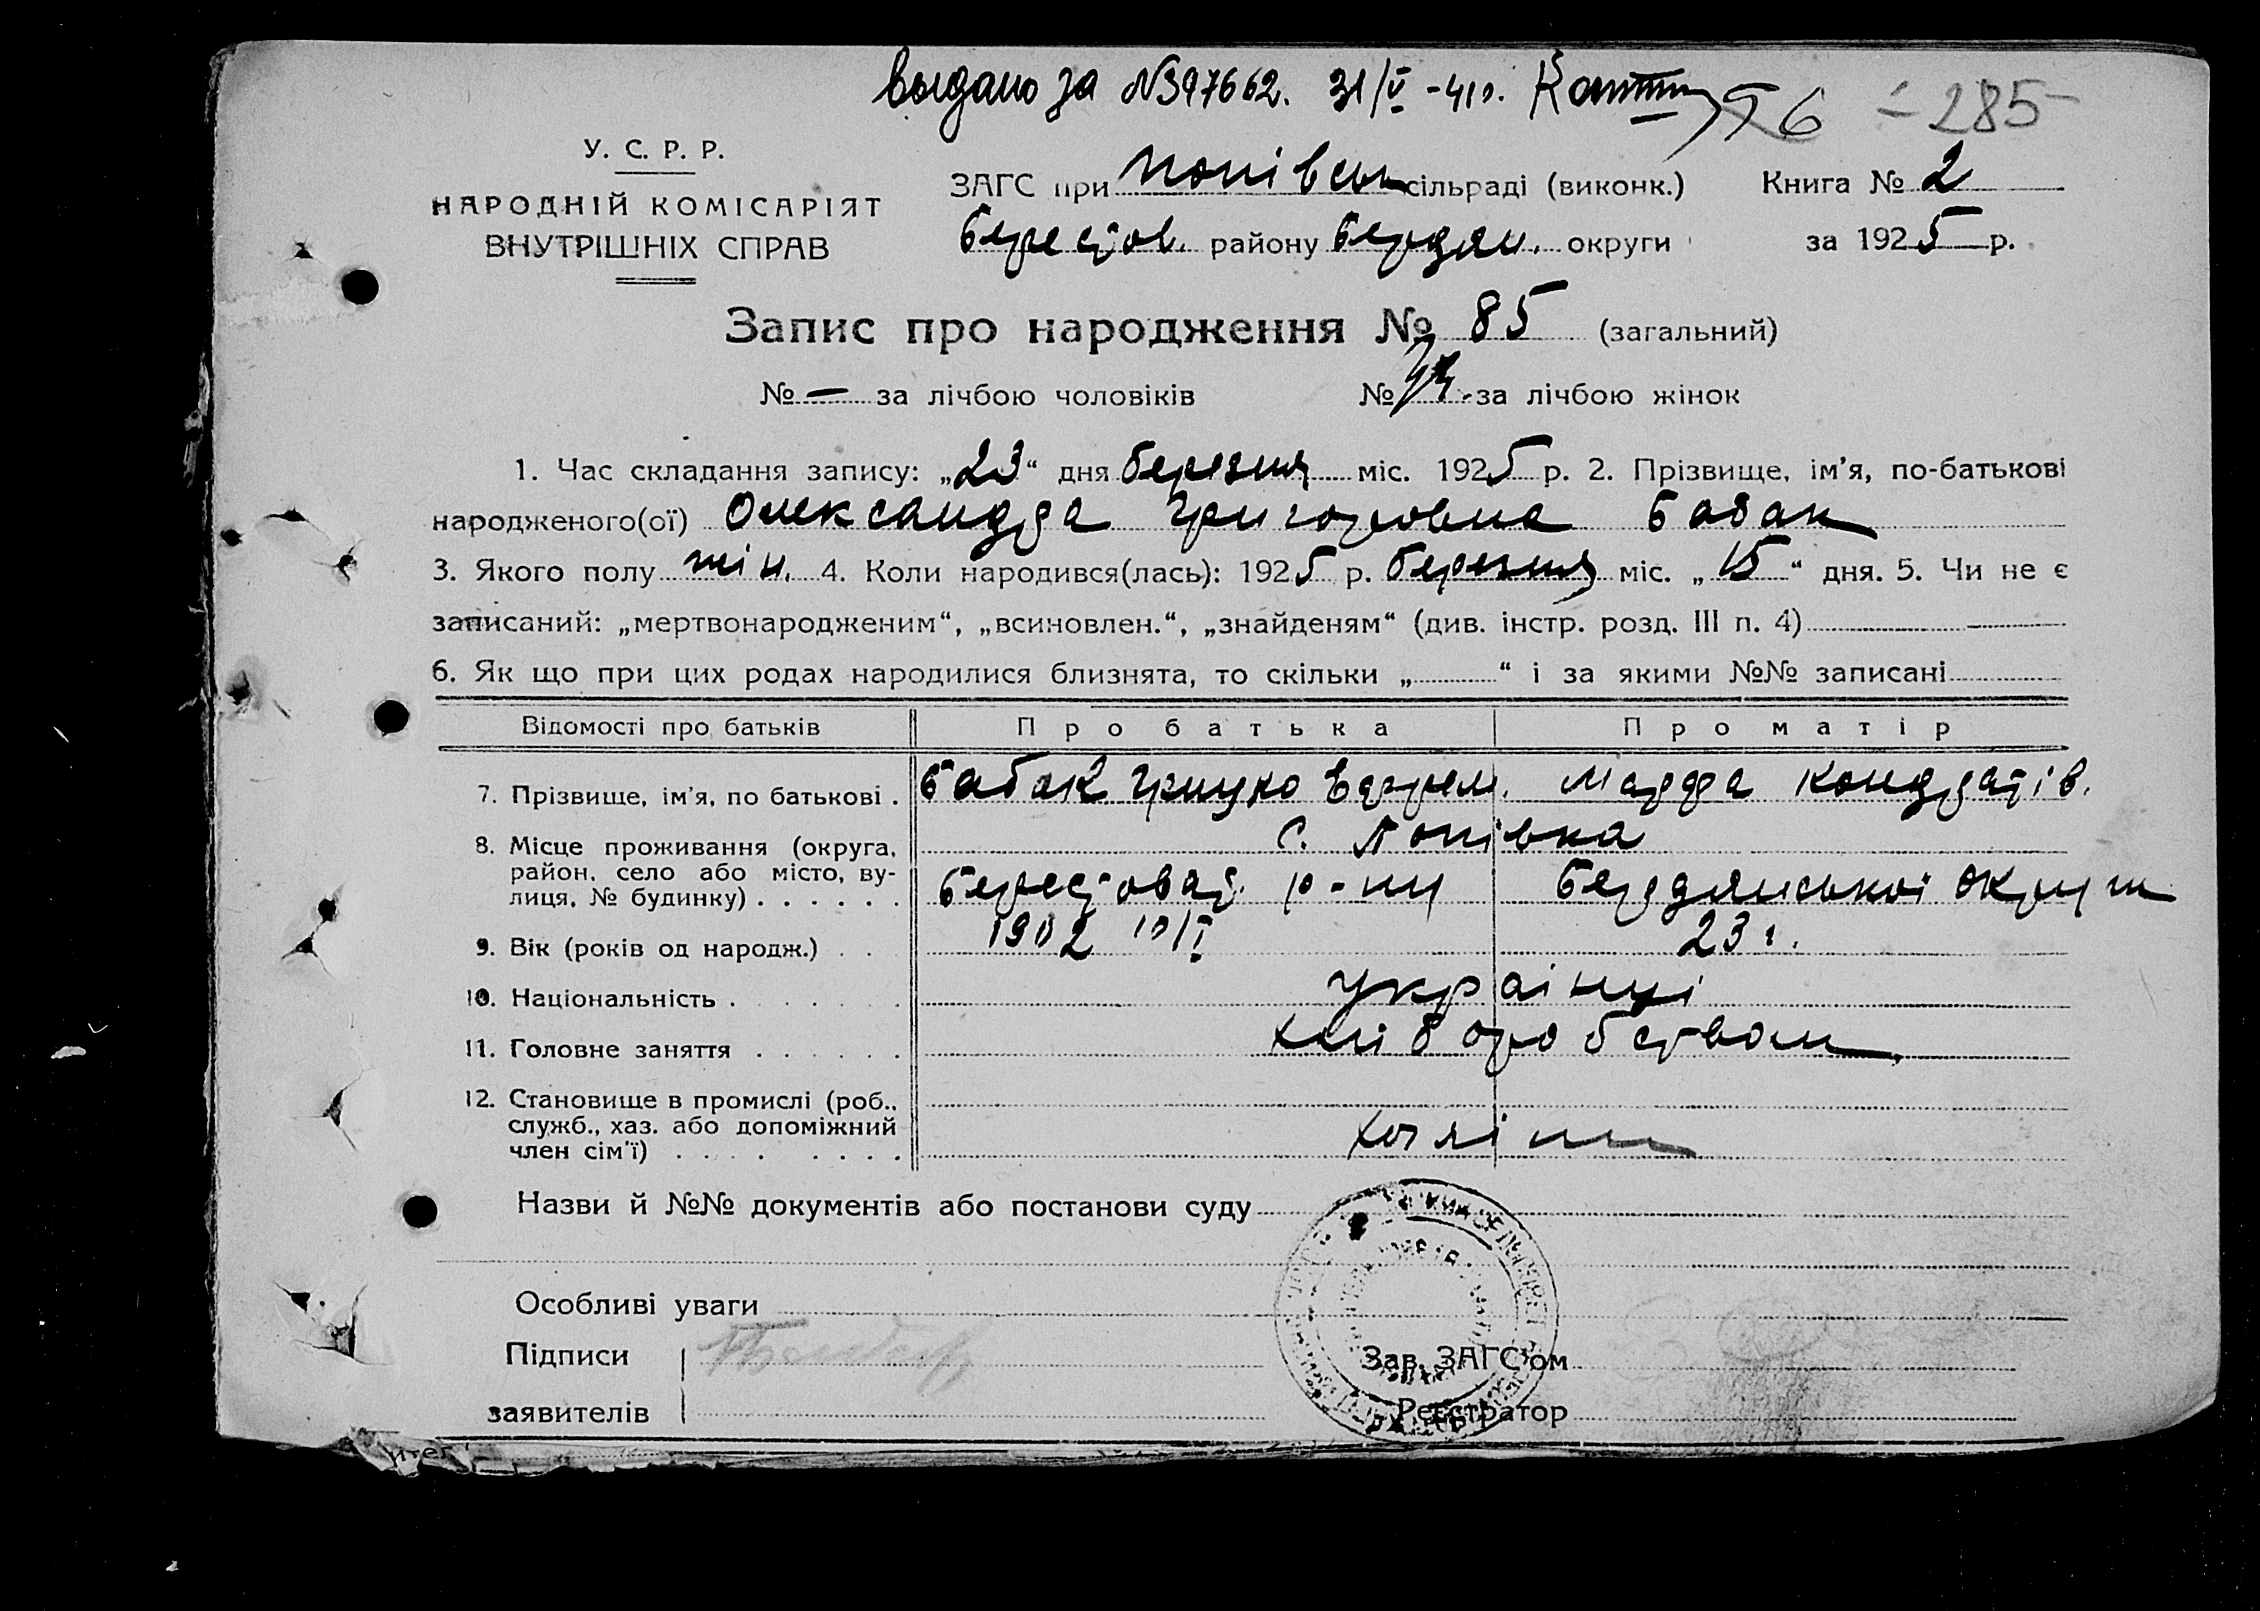 выдано за №397662. 31/V -41р.
Т6 - 285
У. С. Р. Р.
НАРОДНІЙ КОМІСАРІЯТ
ВНУТРІШНІХ СПРАВ
ЗАГС при Попівськ сільраді (виконк.) Книга № 2
Берестов. району Бердян. округи за 1925 р.
Запис про народження № 85 (загальний)
№ — за лічбою чоловіків № за лічбою жінок
1. Час складання запису: „23“ дня березня міс. 1925 р. 2. Прізвище, ім'я, по-батькові
народженого(ої) Олександра Григоровна Бабак
3. Якого полу жін. 4. Коли народився(лась): 1925 р. березня міс. „15“ дня. 5. Чи не є
записаний: „мертвонародженим“, „всиновлен.“, „знайденям“ (див. інстр. розд. III п. 4)
6. Як що при цих родах народилися близнята, то скільки „ “ і за якими №№ записані
Відомості про батьків Про батька Про матір
7. Прізвище, ім'я, по батькові . Бабак Грицко Ефрем. Марфа Кондратів.
8. Місце проживання (округа, с. Попівка
район, село або місто, ву-
лиця, № будинку) . . . . . . Берестоват. р-ну Бердянської округи
9. Вік (років од народж.) . . 1902 10/I 23 г.
10. Національність . . . . . . українці
11. Головне заняття . . . . . . хліборобством
12. Становище в промислі (роб.,
служб., хаз. або допоміжний
член сім'ї) . . . . . . . . хазяїни
Назви й №№ документів або постанови суду
Особливі уваги
Підписи Зав. ЗАГС'ом
заявителів Реєстратор